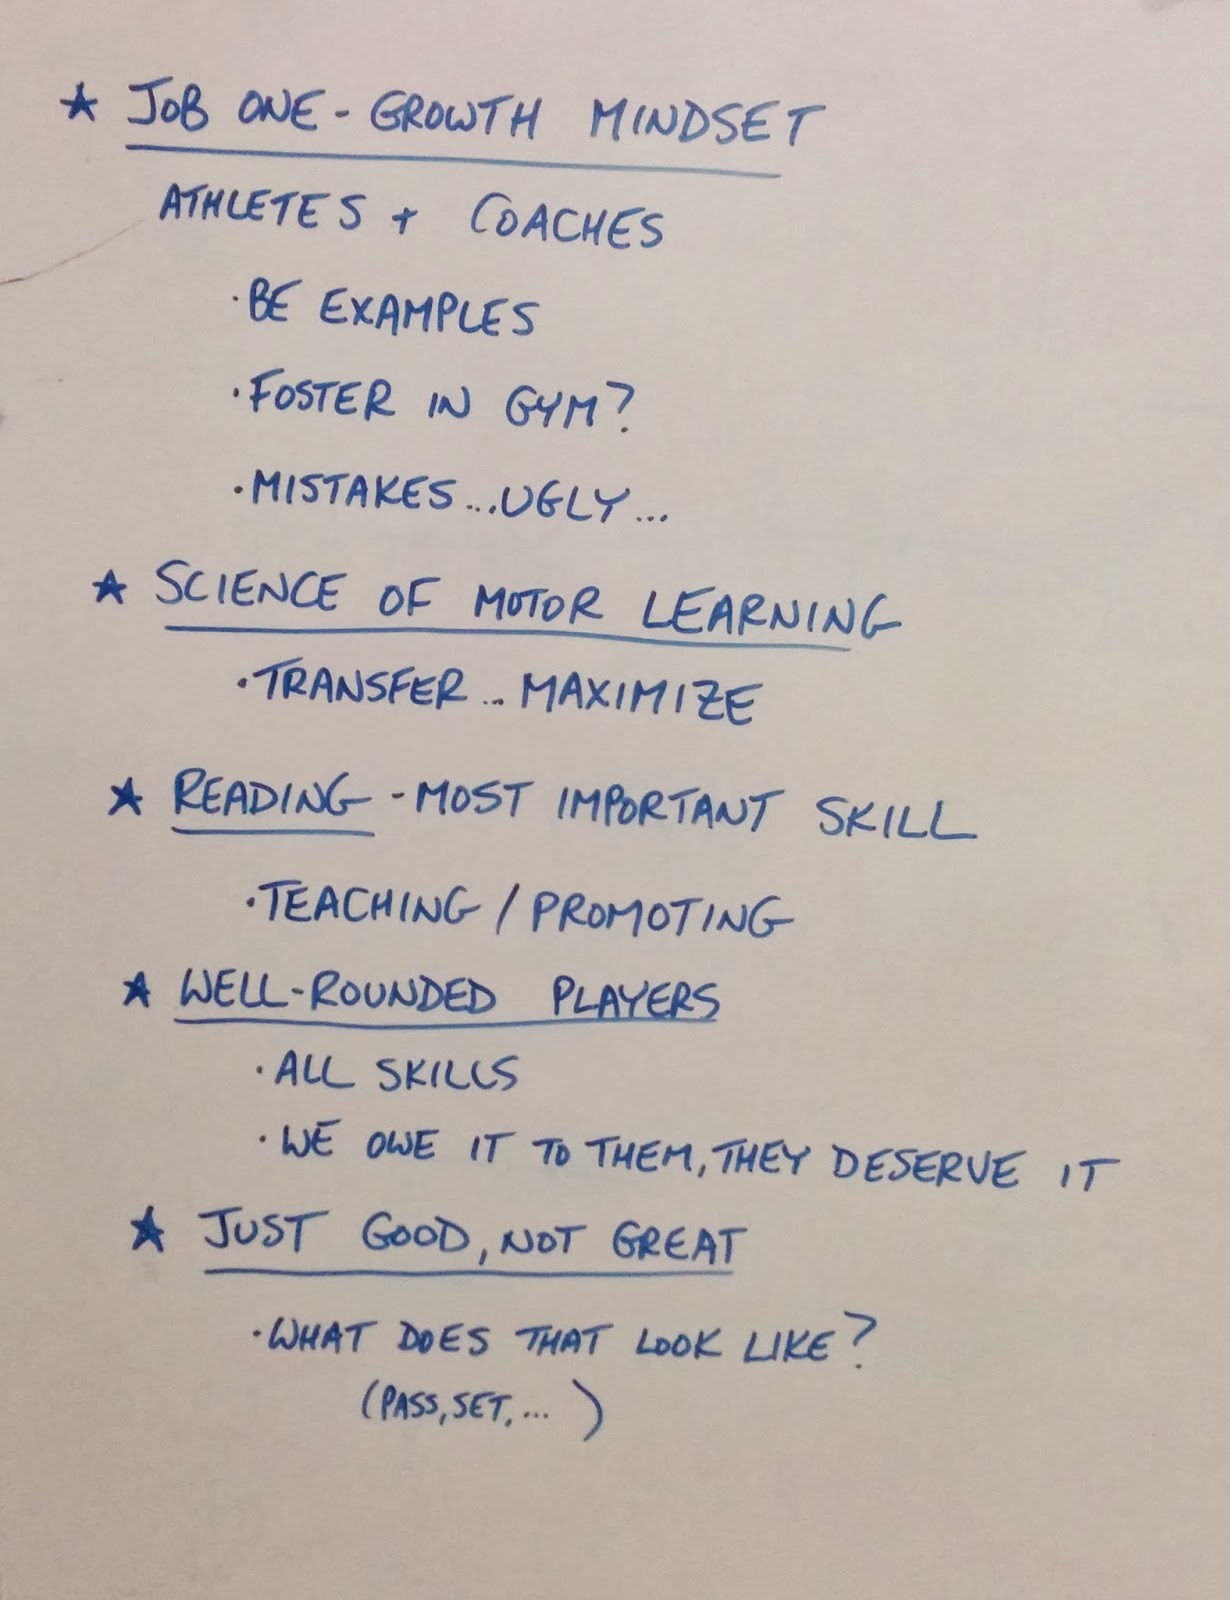 ★ JOB ONE - GROWTH MINDSET
ATHLETES + COACHES
· BE EXAMPLES
· FOSTER IN GYM?
· MISTAKES...UGLY...
★ SCIENCE OF MOTOR LEARNING
· TRANSFER... MAXIMIZE
★ READING - MOST IMPORTANT SKILL
· TEACHING / PROMOTING
★ WELL-ROUNDED PLAYERS
· ALL SKILLS
· WE OWE IT TO THEM, THEY DESERVE IT
★ JUST GOOD, NOT GREAT
· WHAT DOES THAT LOOK LIKE?
(PASS, SET, ... )